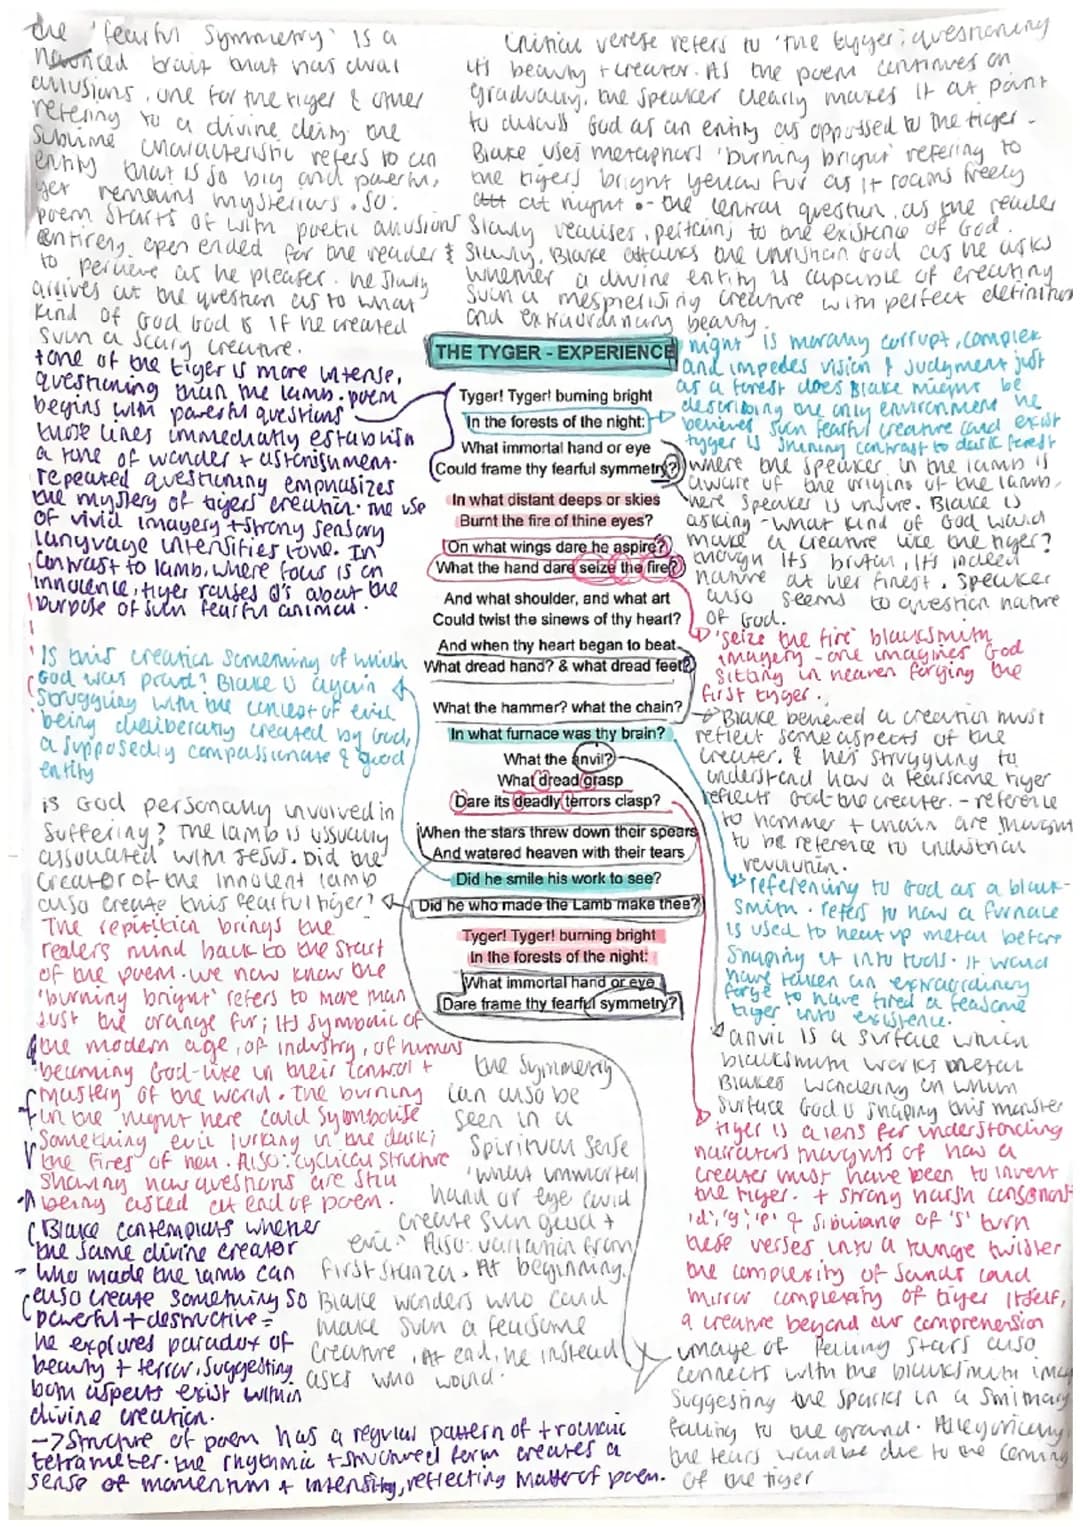 the 'fearful Symmetry' is a
nuanced trait that has dual
allusions, one for the tiger & other
refering to a divine deity. the
sublime characteristic refers to an
entity that is so big and powerful,
yet remains mysterious. So:
poem starts of with poetic allusions
entirely open ended for the reader
to perceive as he pleases. he slowly
arrives at the question as to what
kind of God God is if he created
such a scary creature.
Initial verese refers to 'the tyger', questioning
its beauty + creator. As the poem continues on
gradually, the speaker clearly makes it at point
to discuss God as an entity as oppossed to the tiger.
Blake uses metaphors 'burning bright' refering to
the tigers bright yellow fur as it roams freely
at night - the central question, as the reader
slowly realises, pertains to the existence of God.
& slowly, Blake attacks the christian God as he asks
whether a divine entity is capable of creating
such a mesmerising creature with perfect definition
and extraordinary beauty.
tone of the tiger is more intense,
questioning than the lamb. poem
begins with powerful questions
those lines immediately establish
a tone of wonder + astonishment.
repeated questioning emphasizes
the mystery of tigers creation. the use
of vivid imagery + strong sensory
language intensifies tone. In
contrast to lamb, where focus is on
innocence, tiger raises Q's about the
purpose of such fearful animal.
Is this creation something of which
God was proud? Blake is again
struggling with the concept of evil
being deliberately created by God,
a supposedly compassionate & good
entity
is God personally involved in
suffering? The lamb is usually
associated with Jesus. Did the
creator of the innocent lamb
also create this fearful tiger?
The repitition brings the
readers mind back to the start
of the poem. we now know the
'burning bright' refers to more than
Just the orange fur; its symbolic of
the modern age, of industry, of humans
becoming God-like in their control +
mastery of the world. The burning
in the night here could symbolise
something evil lurking in the dark;
the fires of hell. Also: cyclical structure
showing how questions are still
being asked at end of poem.
Blake contemplates whether
the same divine creator
who made the lamb can
also create something so
powerful + destructive =
he explores paradox of
beauty + terror, suggesting
both aspects exist within
divine creation.
-> Structure of poem has a regular pattern of trochaic
tetrameter. the rhythmic + structured form creates a
sense of momentum + intensity, reflecting matter of poem.
THE TYGER - EXPERIENCE
Tyger! Tyger! burning bright
In the forests of the night:
What immortal hand or eye
Could frame thy fearful symmetry?
In what distant deeps or skies
Burnt the fire of thine eyes?
On what wings dare he aspire?
What the hand dare seize the fire?
And what shoulder, and what art
Could twist the sinews of thy heart?
And when thy heart began to beat
What dread hand? & what dread feet?
What the hammer? what the chain?
In what furnace was thy brain?
What the anvil?
What dread grasp
Dare its deadly terrors clasp?
When the stars threw down their spears
And watered heaven with their tears
Did he smile his work to see?
Did he who made the Lamb make thee?
Tyger! Tyger! burning bright
In the forests of the night:
What immortal hand or eye
Dare frame thy fearful symmetry?
the symmetry
can also be
seen in a
spiritual sense
'what immortal
hand or eye could
create such good +
evil' Also: variation from
first stanza. At beginning,
Blake wonders who could
make such a fearsome
creature. At end, he instead
asks who would.
night is morally corrupt, complex
and impedes vision & judgment just
as a forest does Blake might be
describing the only environment he
believes such fearful creature could exist
tyger is shining contrast to dark forest
where the speaker in the lamb is
aware of the origins of the lamb,
here speaker is unsure. Blake is
asking - what kind of God would
make a creature like the tiger?
though its brutal, its indeed
nature at her finest. Speaker
also seems to question nature
of God.
'seize the fire' blacksmith
imagery - one imagines God
sitting in heaven forging the
first tyger.
Blake believed a creation must
reflect some aspects of the
creater. & he's struggling to
understand how a fearsome tiger
reflects God the creater. - reference
to hammer + chain are thought
to be reference to industrial
revolution.
referencing to God as a black-
smith. refers to how a furnace
is used to heat up metal before
shaping it into tools. it would
have taken an extraordinary
forge to have fired a fearsome
tiger into existence.
anvil is a surface which
blacksmith works metal
Blakes wondering on which
surface God is shaping this monster
tiger is a lens for understanding
narrators thoughts of how a
creater must have been to invent
the tiger. + strong harsh consonants
'd', 'g', 'p' & sibilance of 's' turn
these verses into a tounge twister
the complexity of sounds could
mirror complexity of tiger itself,
a creature beyond our comprehension
image of falling stars also
connects with the blacksmith image
suggesting the sparks in a smithary
falling to the ground. Allegorically,
the tears would be due to the coming
of the tiger